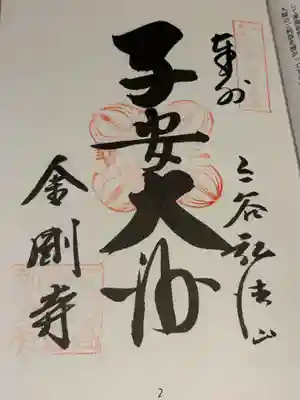 奉拝
三谷弘法山
子安大師
金剛寺
2